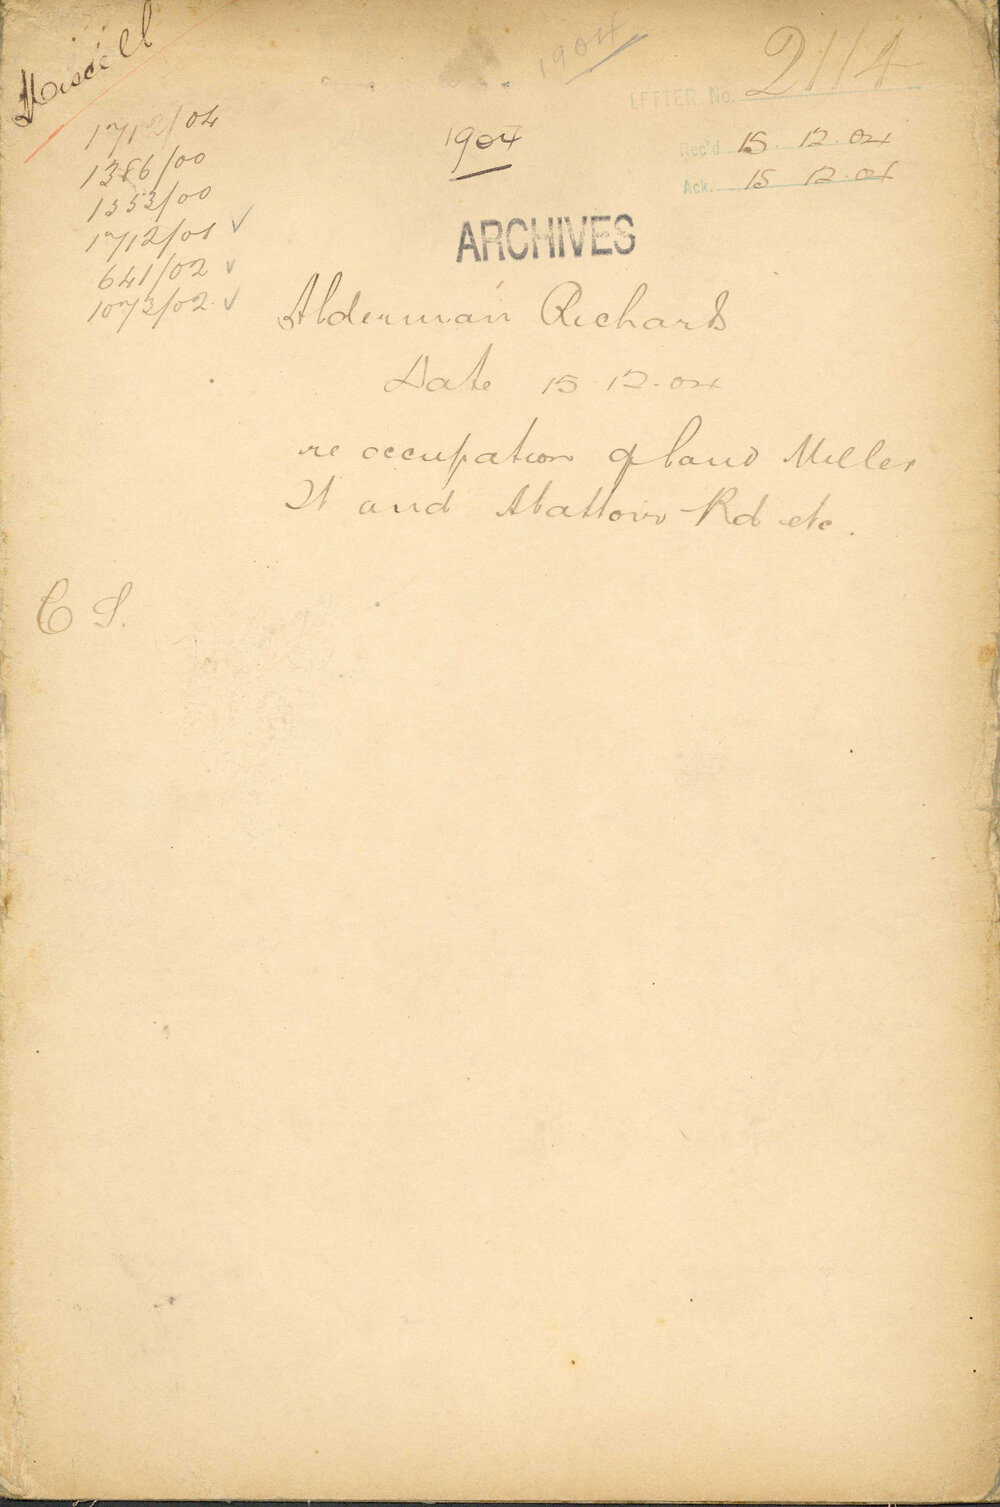 Miscell
1904
LETTER No. 2114
Rec'd 15. 12. 04
Ack. 15 12. 04
1904
ARCHIVES
1712/04
1386/00
1553/00
1712/01 ✓
641/02 ✓
1073/02 ✓
Alderman Richards
Date 15. 12. 04
re occupation of land Miller
St and Abattoirs Rd etc.
C S.